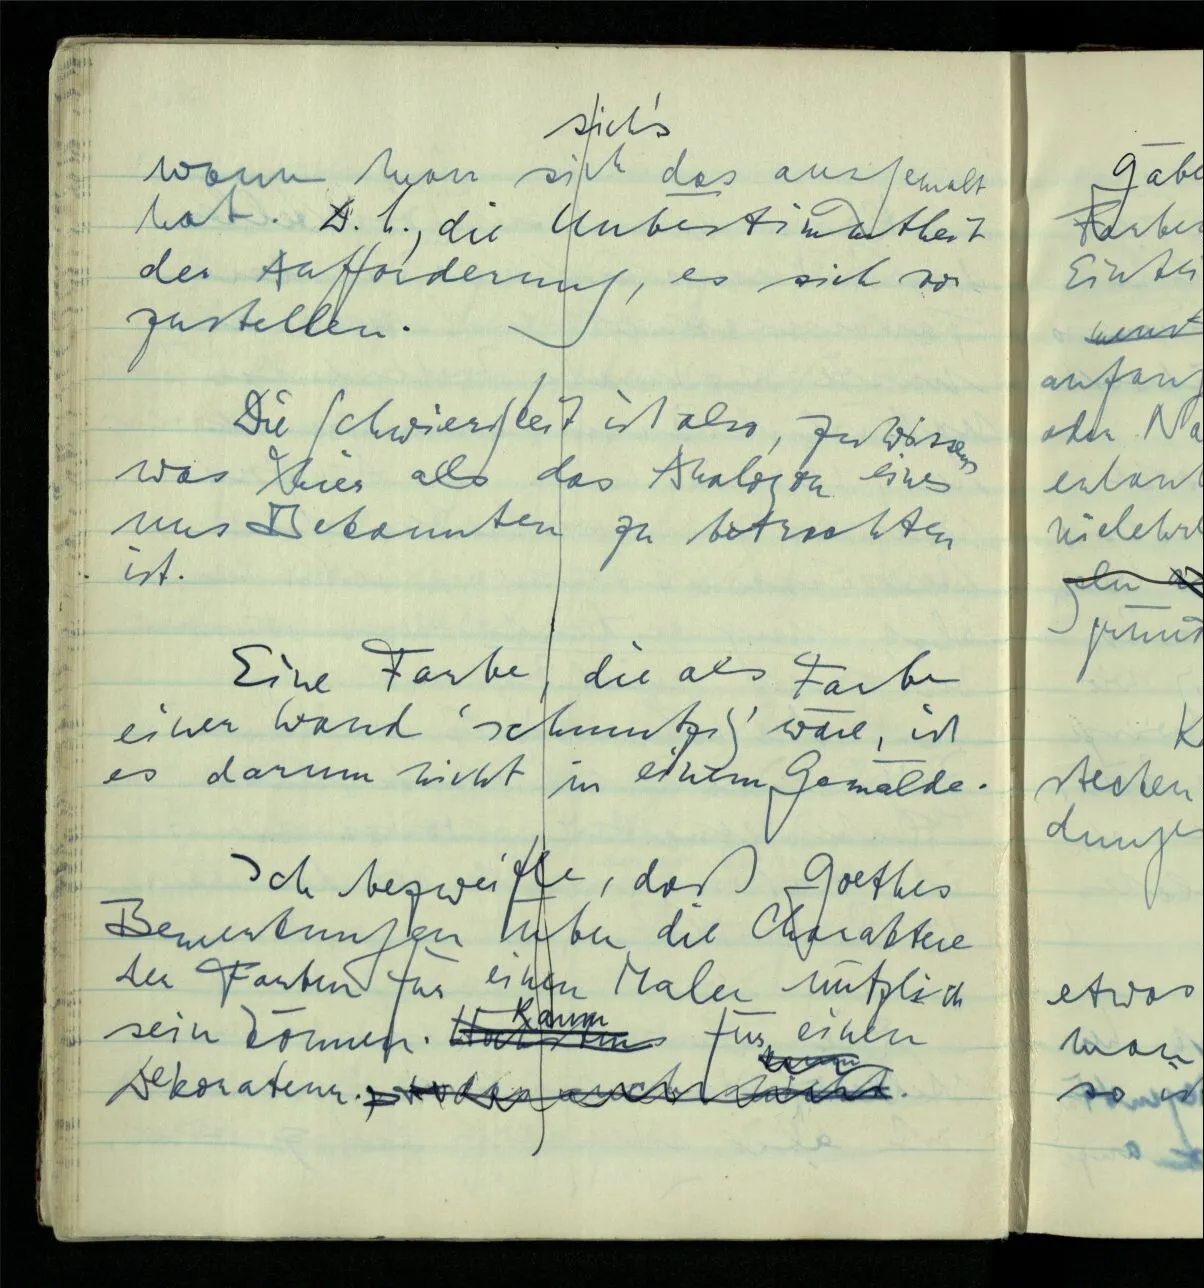 sich's
wann man sich das ausgemalt
hat. D.h., die Unbestimmtheit
der Aufforderung, es sich vor-
zustellen.
Die Schwierigkeit ist also, zu wissen
was hier als das Analogon eines
uns Bekannten zu betrachten
ist.
Eine Farbe, die als Farbe
einer Wand 'schmutzig' wäre, ist
es darum nicht in einem Gemälde.
Ich bezweifle, daß Goethes
Bemerkungen über die Charaktere
der Farben für einen Maler nützlich
sein können.
Kaum
Höchstens für einen
kaum
Dekorateur. oder auch nicht.
gäbe
Farben
anfang
oder
K
stechen
etwas
man
so